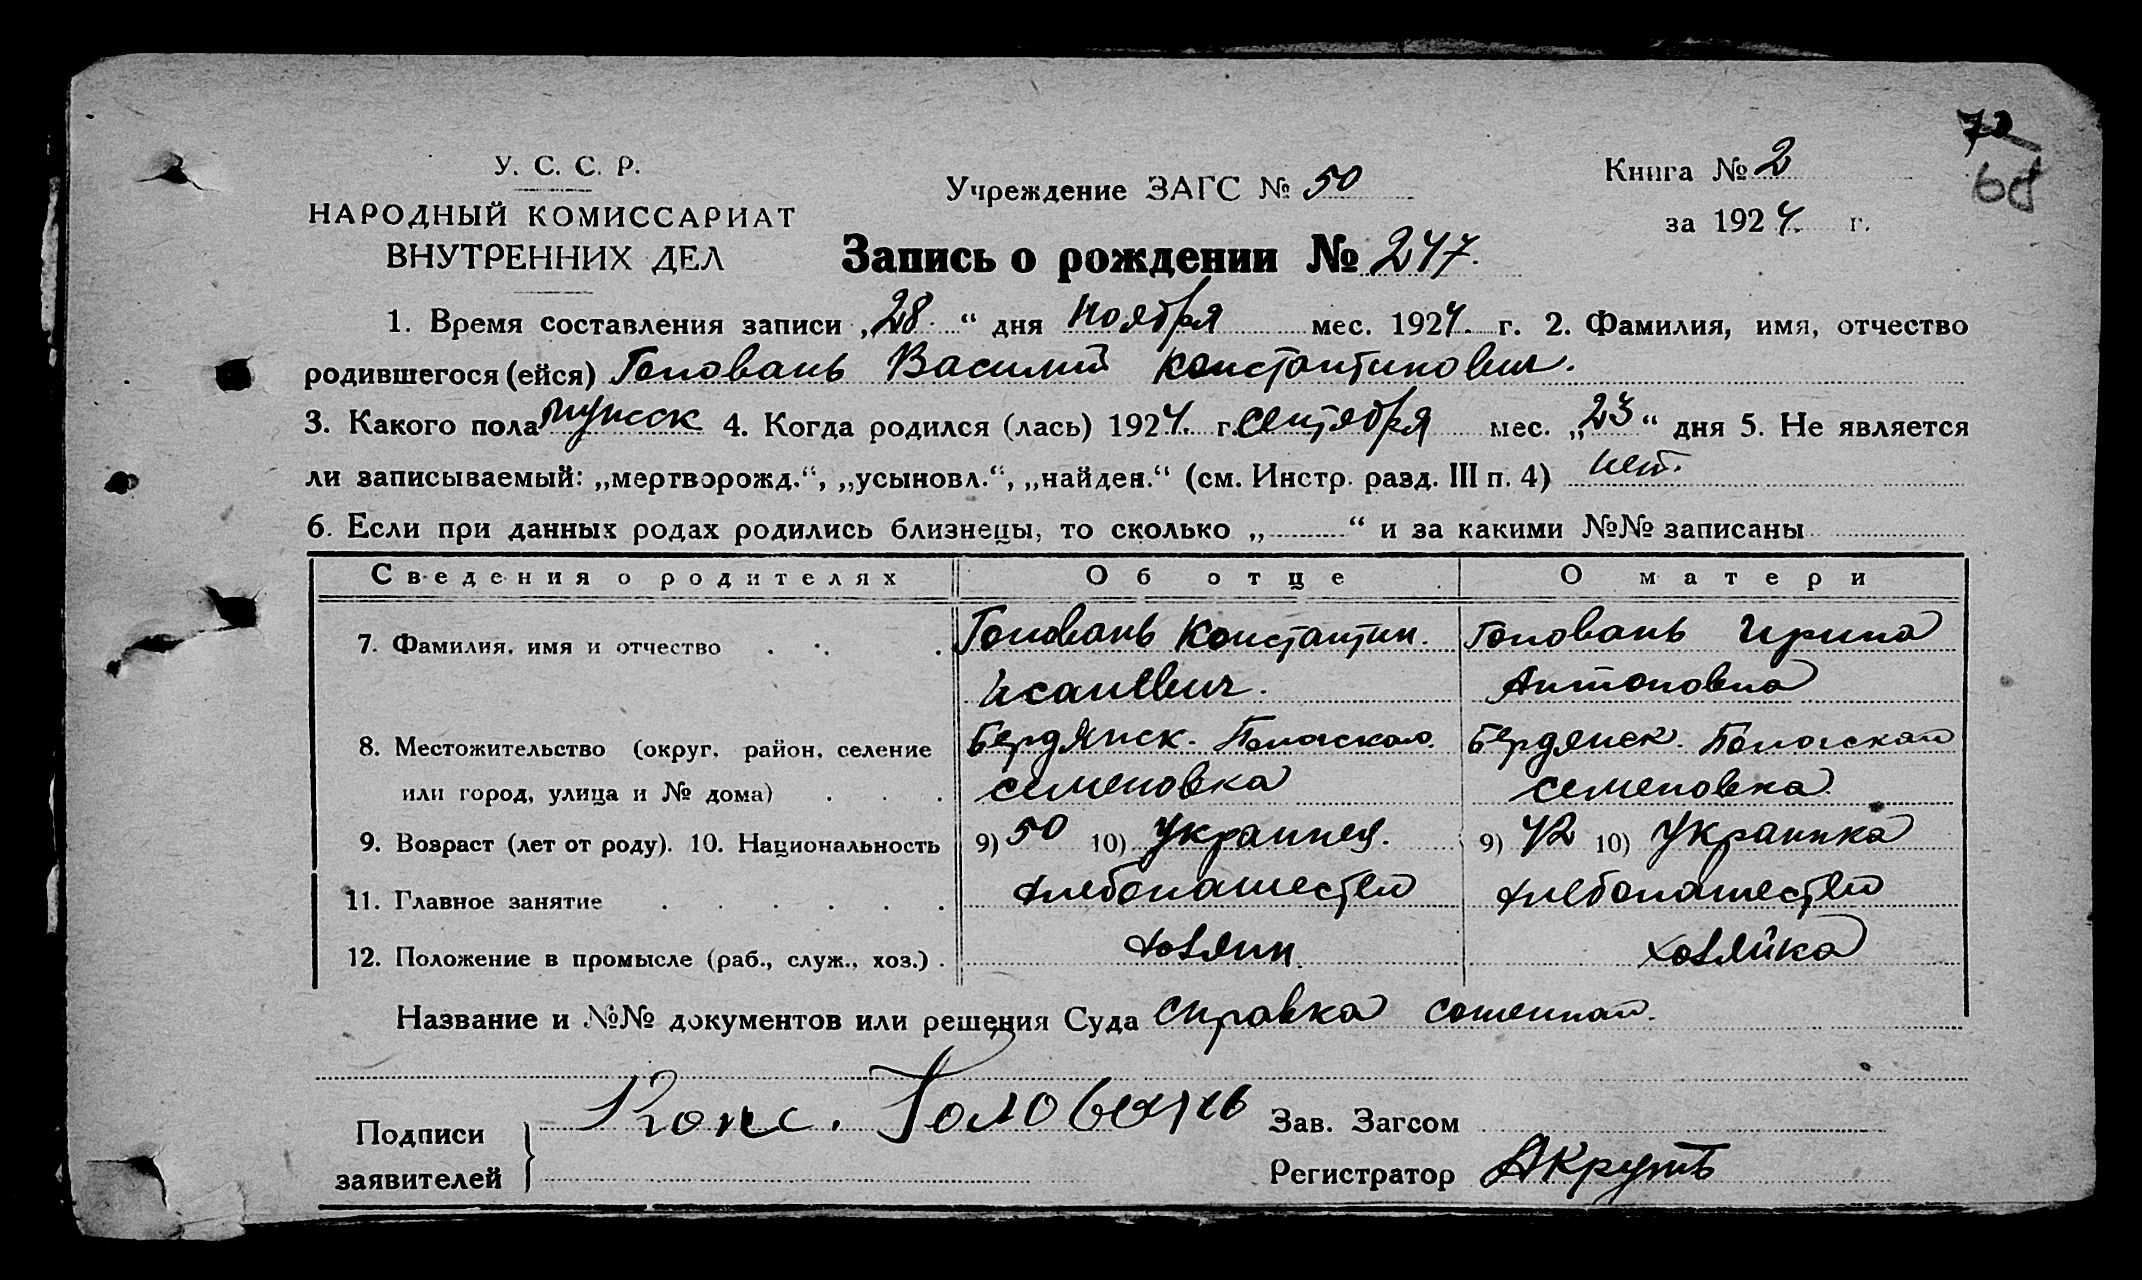 72
68
У. С. С. Р.
НАРОДНЫЙ КОМИССАРИАТ
ВНУТРЕННИХ ДЕЛ
Учреждение ЗАГС № 50
Книга № 2
за 1924 г.
Запись о рождении № 247.
1. Время составления записи „28“ дня Ноября мес. 1924. г. 2. Фамилия, имя, отчество
родившегося (ейся) Головань Василий Константинович.
3. Какого пола мужск 4. Когда родился (лась) 1924. г. Сентября мес. „23“ дня 5. Не является
ли записываемый: „мертворожд.“, „усыновл.“, „найден.“ (см. Инстр. разд. III п. 4) нет.
6. Если при данных родах родились близнецы, то сколько „ “ и за какими №№ записаны
Сведения о родителях Об отце О матери
7. Фамилия, имя и отчество Головань Константин. Головань Ирина
Исаиевич. Антоновна
8. Местожительство (округ, район, селение Бердянск. Пологском. Бердянск. Пологской
или город, улица и № дома) Семеновка Семеновка
9. Возраст (лет от роду). 10. Национальность 9) 50 10) Украинец. 9) 42 10) Украинка
11. Главное занятие хлебопашество хлебопашество
12. Положение в промысле (раб., служ., хоз.) хозяин. хозяйка
Название и №№ документов или решения Суда справка
Подписи заявителей Конс. Головань
Зав. Загсом
Регистратор АКруть